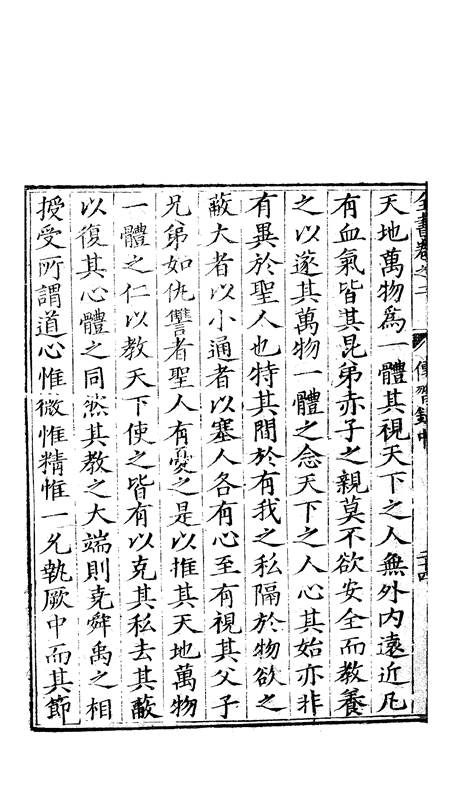 全書卷之二　傳習錄中　二十四
天地萬物爲一體其視天下之人無外内遠近凡
有血氣皆其昆弟赤子之親莫不欲安全而教養
之以遂其萬物一體之念天下之人心其始亦非
有異於聖人也特其間於有我之私隔於物欲之
蔽大者以小通者以塞人各有心至有視其父子
兄弟如仇讐者聖人有憂之是以推其天地萬物
一體之仁以教天下使之皆有以克其私去其蔽
以復其心體之同然其教之大端則堯舜禹之相
授受所謂道心惟微惟精惟一允執厥中而其節